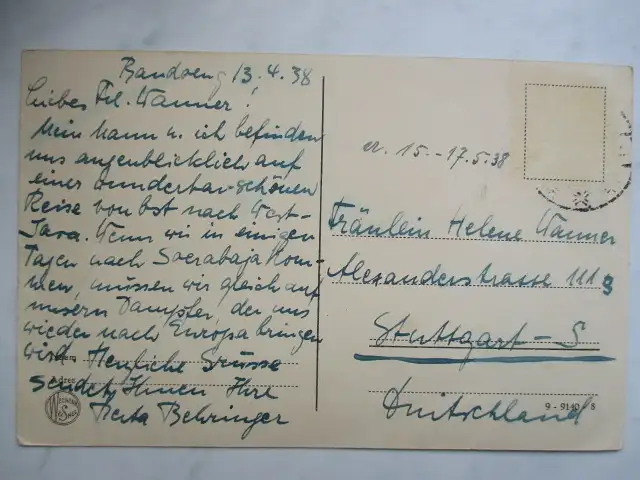 Bandoeng 13.4.38
Liebes Frl. Wanner!
Mein Mann u. ich befinden
uns augenblicklich auf
einer wunderbar schönen
Reise von Ost nach West-
Java. Wenn wir in einigen
Tagen nach Soerabaja kom-
men, müssen wir gleich auf
unsern Dampfer, der uns
wieder nach Europa bringen
wird. Herzliche Grüsse
sendet Ihnen Ihre
Behringer
15.-17.5.38
Fräulein Helene Wanner
Alexanderstrasse 111
Stuttgart-S
Deutschland
9-9140-8